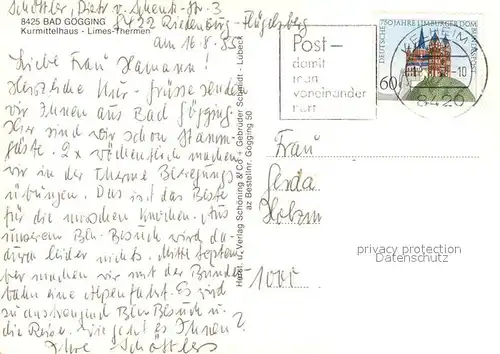 Schöttler, Dietr. v. Schenk-Str. 3
8425 BAD GÖGGING
Kurmittelhaus - Limes-Thermen
8422 Riedenburg-Flügelsberg
am 16.8.85
Liebe Frau Hamann!
Herzliche Kur-Grüsse senden
wir Ihnen aus Bad Gögging.
Hier sind wir schon Stamm-
gäste. 2x wöchentlich machen
wir in der Therme Bewegungs-
übungen. Das ist das Beste
für die maroden Knochen. Aus
unserem Bln-Besuch wird da-
durch leider nichts. Mitte Septem-
ber machen wir mit der Bundes-
bahn eine Alpenfahrt. Es wird
zu anstrengend Bln-Besuch u.
die Reise. Wie geht es Ihnen?
Ihre Schöttlers
Herst. u. Verlag Schöning & Co + Gebrüder Schmidt · Lübeck
az Bestellnr. Gögging 50
Post-
damit
man
voneinander
hört
DEUTSCHE BUNDESPOST
750 JAHRE LIMBURGER DOM
60
10
8420
Frau
Gerda
1000
privacy protection
Datenschutz